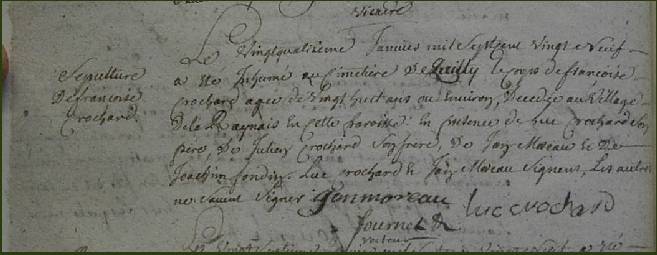 Vicaire
Sepulture
De francoise
Crochard.
Le Vingtquatrieme Janvier mil Sept Cent Vingt e Neuf
a ete Inhumé au Cimetiere De le corps de francoise
Crochard agee de Vingt huit ans ou Environ, Decedee au Village
De la En cette paroisse: En presence de Luc Crochard Son
pere De Julien Crochard Son frere, De Jan Moreau & De
Joachim Luc Crochard & Jan Moreau Signent, Les autres
ne Savent Signer Janmoreau luccrochard
fournel
recteur
Le Vingt Septieme